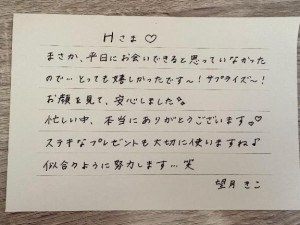 Hさま♡
まさか、平日にお会いできると思っていなかった
ので…とっても嬉しかったです〜!サプライズ〜!
お顔を見て、安心しました。
忙しい中、本当にありがとうございます。♡
ステキなプレゼントも大切に使いますね♪
似合うように努力します…笑
望月きこ